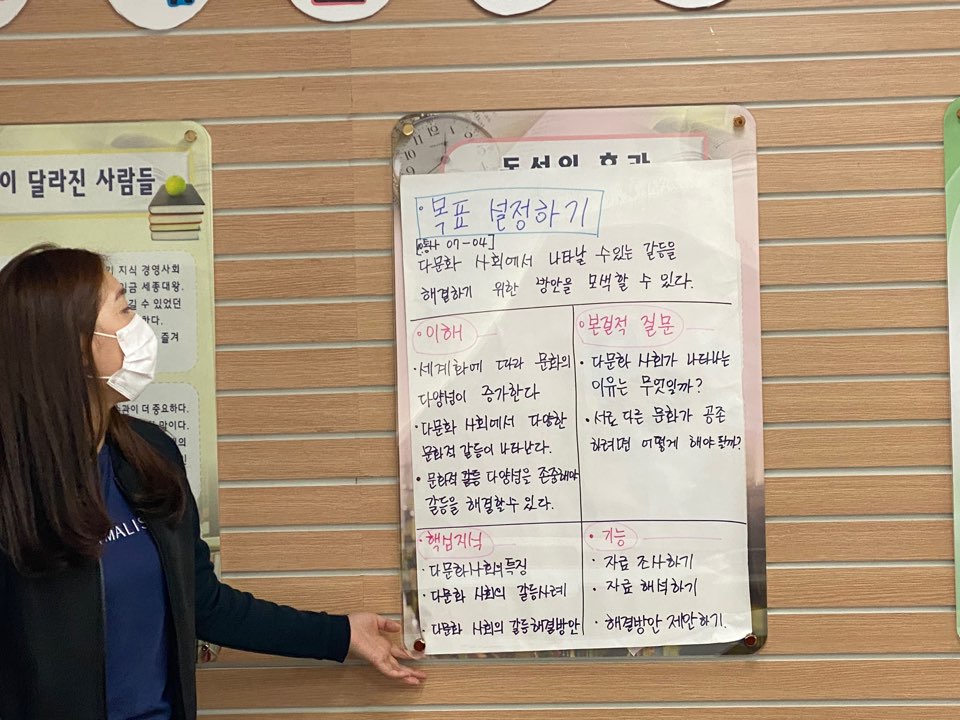 이 달라진 사람들
기 지식 경영사회
지금 세종대왕.
길 수 있었던
한다.
즐겨
과이 더 중요하다.
말이다.
MALIS
독서의 효과
· 목표 설정하기
[통사 07-04]
다문화 사회에서 나타날 수 있는 갈등을
해결하기 위한 방안을 모색할 수 있다.
· 이해
· 세계화에 따라 문화의
다양성이 증가한다
· 다문화 사회에서 다양한
문화적 갈등이 나타난다.
· 문화적 갈등 다양성을 존중해야
갈등을 해결할 수 있다.
· 본질적 질문
· 다문화 사회가 나타나는
이유는 무엇일까?
· 서로 다른 문화가 공존
하려면 어떻게 해야 할까?
· 핵심지식
· 다문화사회의 특징
· 다문화 사회의 갈등사례
· 다문화 사회의 갈등해결방안
· 기능
· 자료 조사하기
· 자료 해석하기
· 해결방안 제안하기.
12
11
10